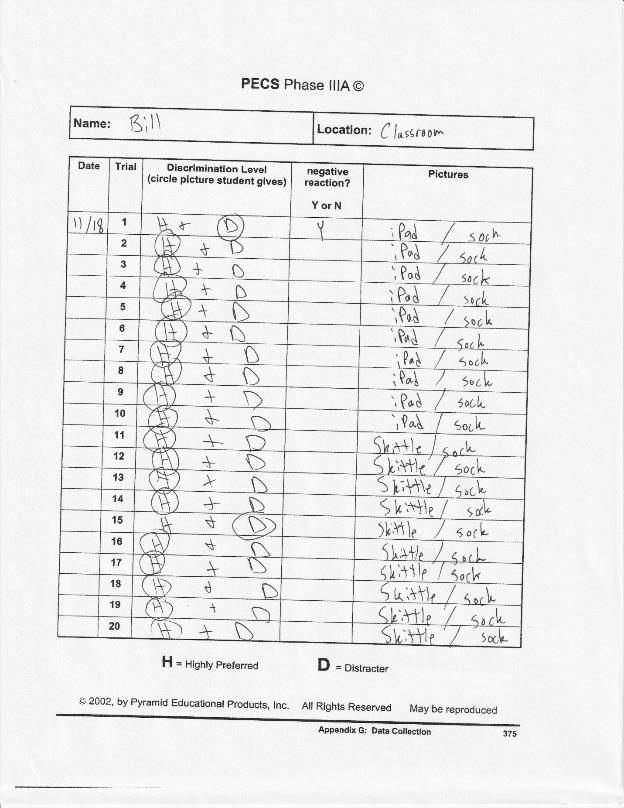 PECS Phase IIIA ©
Name: Bill Location: Classroom
Date Trial Discrimination Level (circle picture student gives) negative reaction? Y or N Pictures
11/18 1 H + D Y iPad / sock
2 H + D iPad / sock
3 H + D iPad / sock
4 H + D iPad / sock
5 H + D iPad / sock
6 H + D iPad / sock
7 H + D iPad / sock
8 H + D iPad / sock
9 H + D iPad / sock
10 H + D iPad / sock
11 H + D Skittle / sock
12 H + D Skittle / sock
13 H + D Skittle / sock
14 H + D Skittle / sock
15 H + D Skittle / sock
16 H + D Skittle / sock
17 H + D Skittle / sock
18 H + D Skittle / sock
19 H + D Skittle / sock
20 H + D Skittle / sock
H = Highly Preferred D = Distracter
© 2002, by Pyramid Educational Products, Inc. All Rights Reserved May be reproduced
Appendix G: Data Collection 375